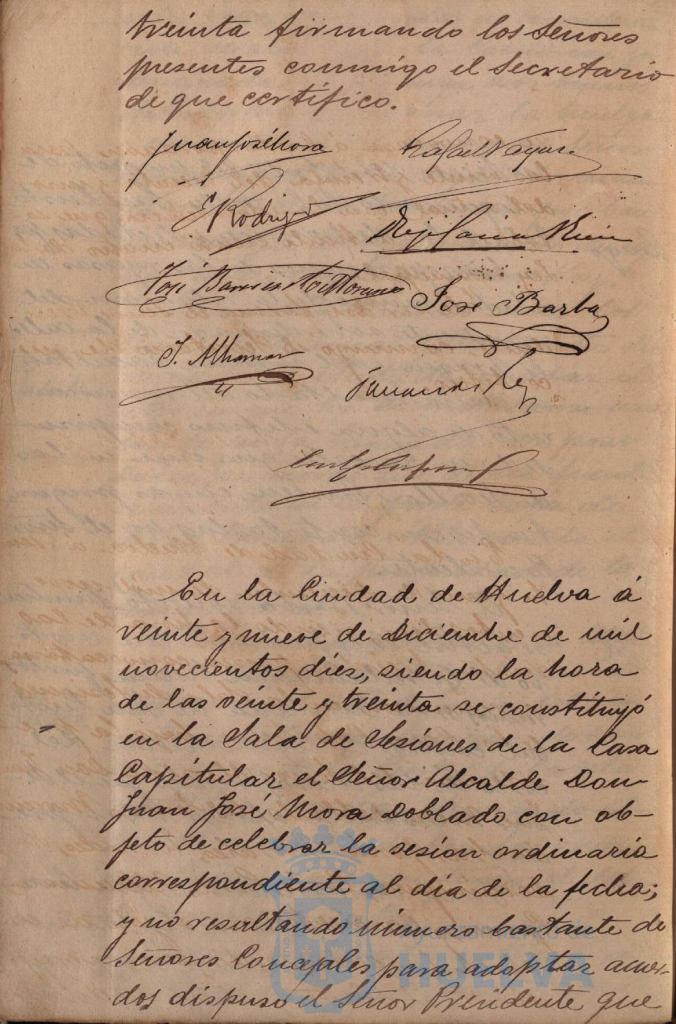 treinta firmando los Señores
presentes conmigo el Secretario
de que certifico.
Juan José Mora
Rafael
E. Rodrigz
José
José Barba
J. Alhamar
En la Ciudad de Huelva á
veinte y nueve de Diciembre de mil
novecientos dies, siendo la hora
de las veinte y treinta se constituyó
en la Sala de Sesiones de la Casa
Capitular el Señor Alcalde Don
Juan José Mora Doblado con ob-
jeto de celebrar la sesión ordinaria
correspondiente al dia de la fecha;
y no resultando número bastante de
Señores Concejales para adoptar acuer-
dos dispuso el Señor Presidente que
HUELVA